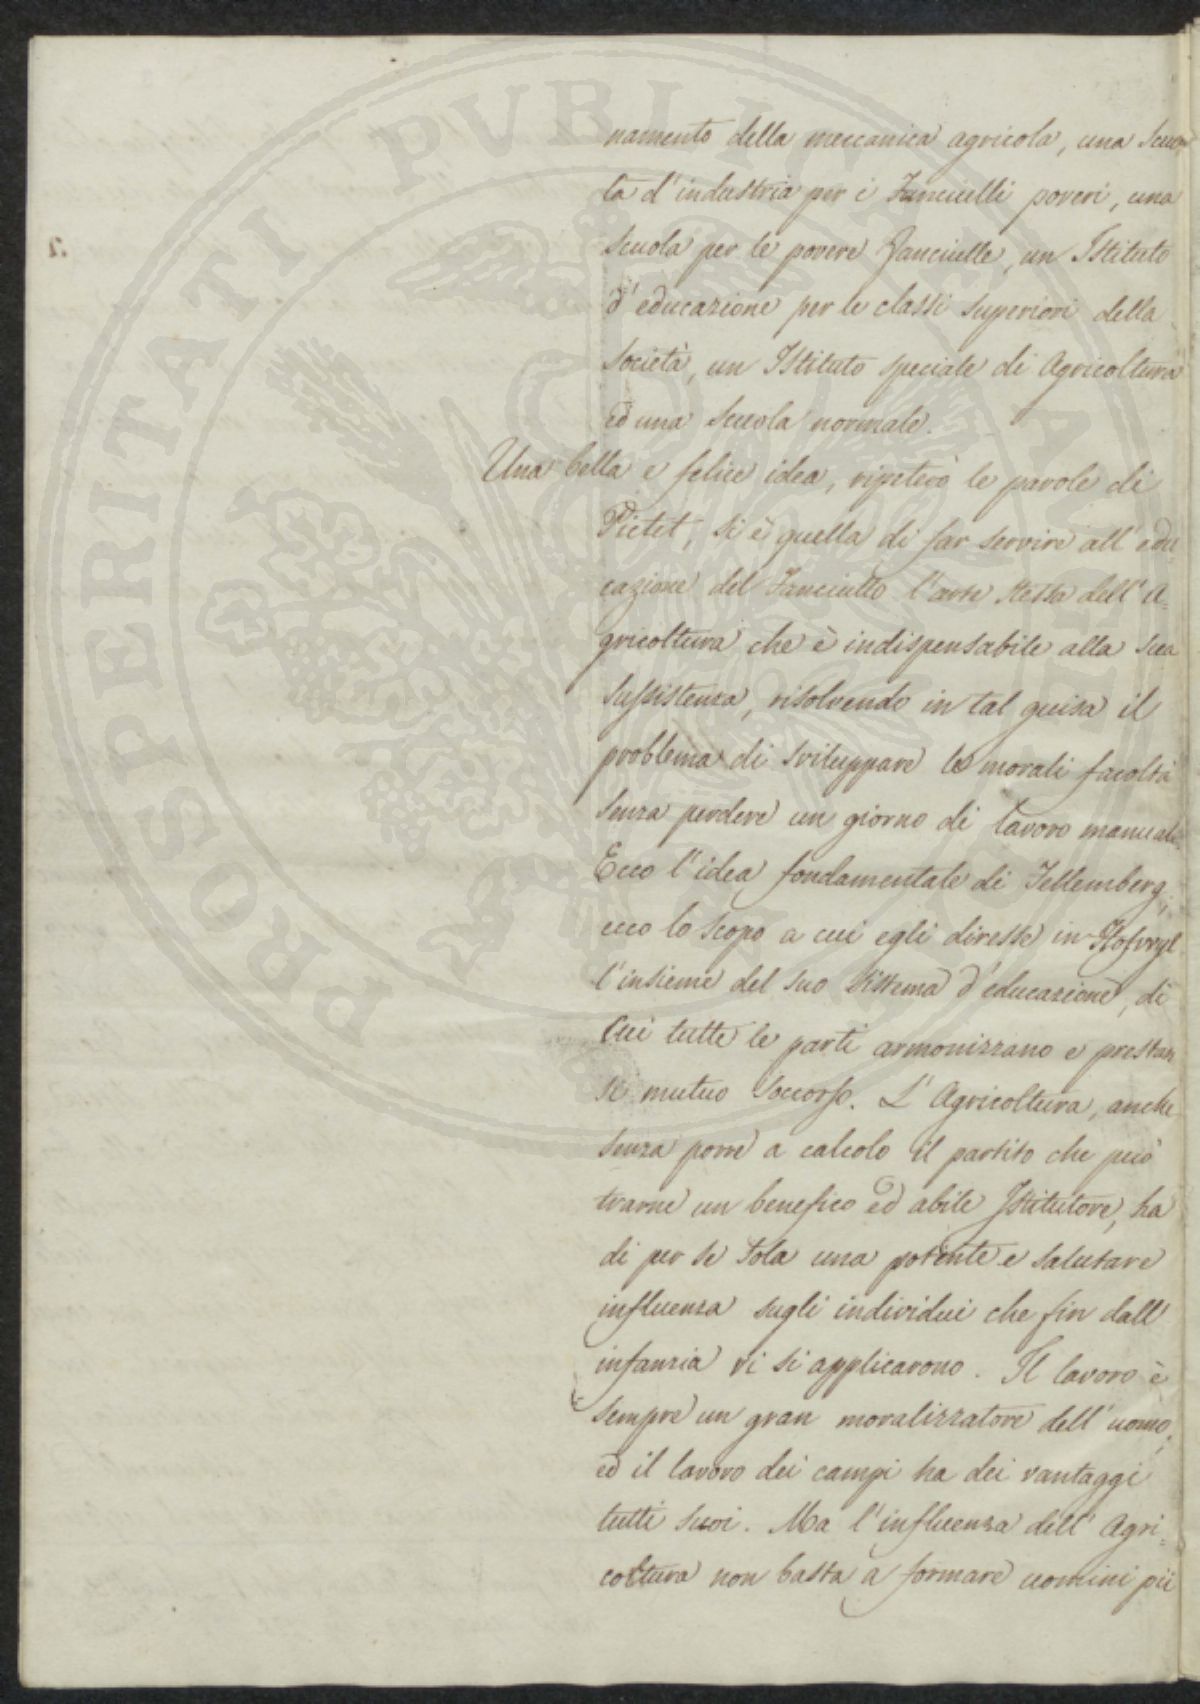 namento della meccanica agricola, una Scuo
la d'industria per i Fanciulli poveri, una
Scuola per le povere Fanciulle, un Istituto
d'educazione per le classi superiori della
Società, un Istituto speciale di Agricoltura
ed una Scuola normale.
Una bella e felice idea, ripeterò le parole di
Pictet, si è quella di far servire all'edu
cazione del Fanciullo l'arte stessa dell'A=
gricoltura che è indispensabile alla sua
sussistenza, risolvendo in tal guisa il
problema di sviluppare le morali facoltà
senza perdere un giorno di lavoro manuale.
Ecco l'idea fondamentale di Fellemberg,
ecco lo scopo a cui egli diresse in Hofwyl
l'insieme del suo sistema d'educazione, di
cui tutte le parti armonizzano e prestan
si mutuo soccorso. L'Agricoltura, anche
senza porre a calcolo il partito che può
trarne un benefico ed abile Istitutore, ha
di per se sola una potente e salutare
influenza sugli individui che fin dall'
infanzia vi si applicarono. Il lavoro è
sempre un gran moralizzatore dell'uomo,
ed il lavoro dei campi ha dei vantaggi
tutti suoi. Ma l'influenza dell'Agri=
coltura non basta a formare uomini più
PROSPERITATI PVBLICAE